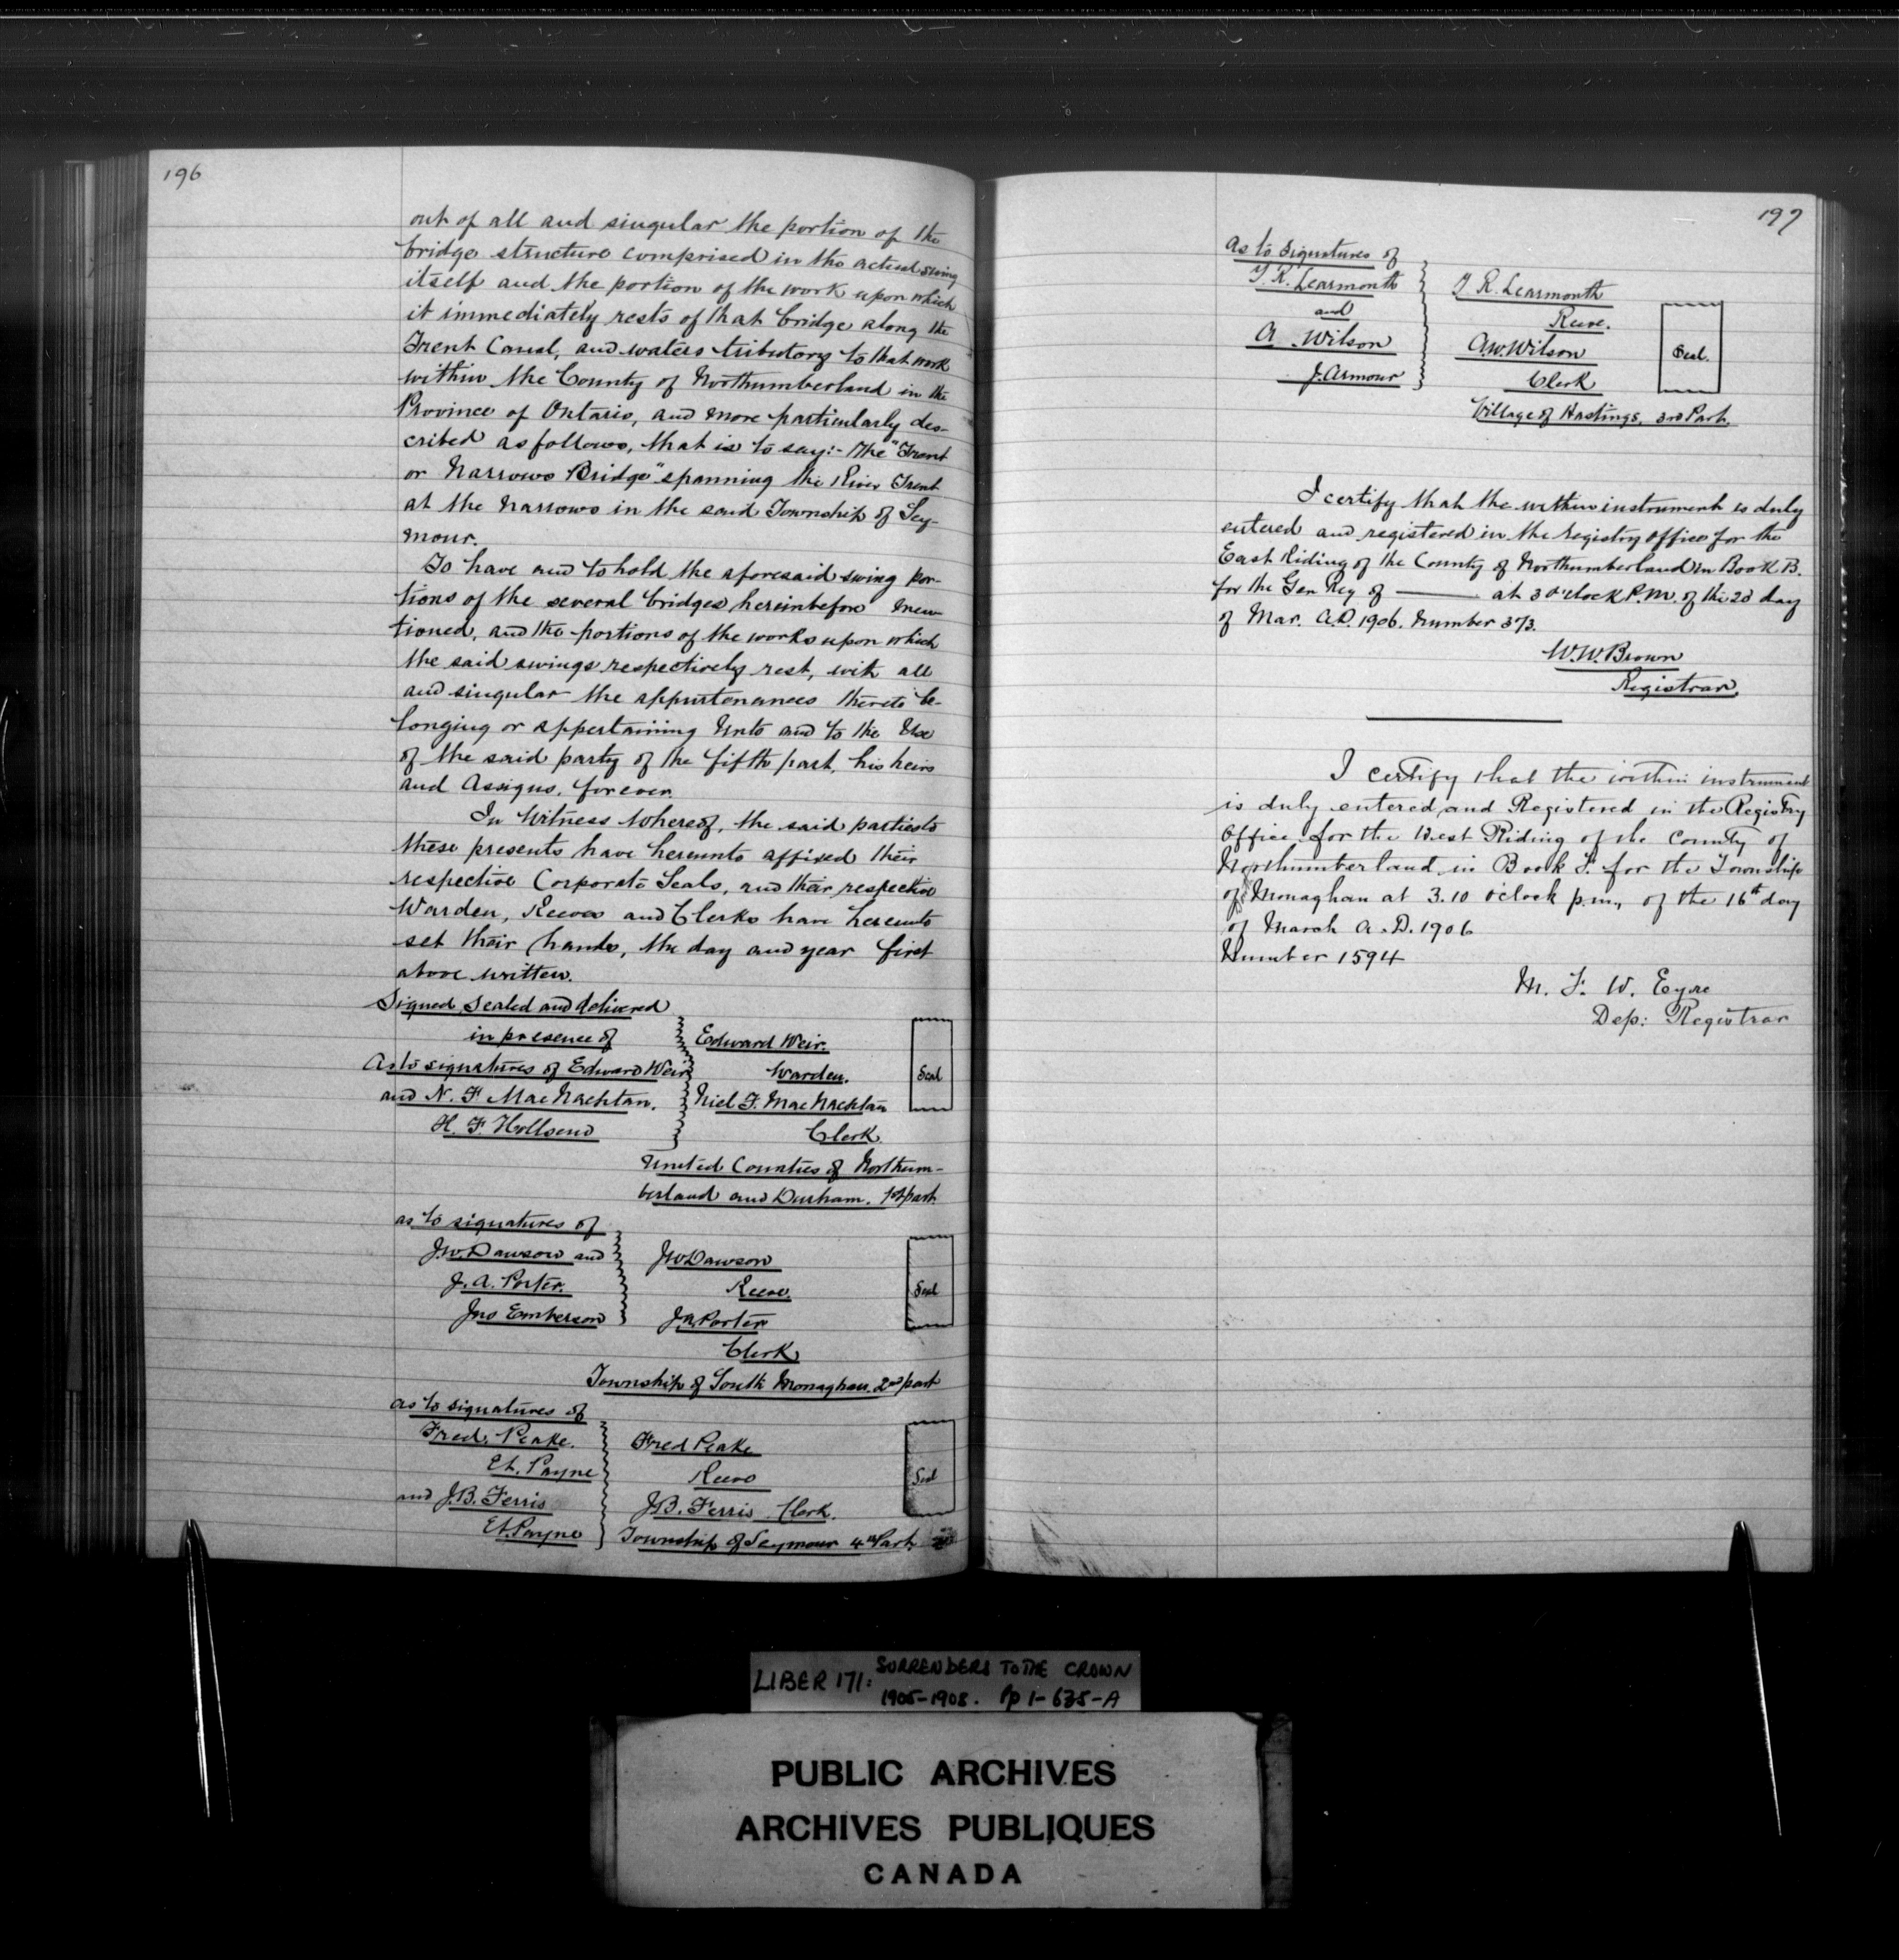 196
out of all and singular the portion of the
bridge structure comprised in the actual swing
itself and the portion of the work upon which
it immediately rests of that bridge along the
Trent Canal, and waters tributary to that work
within the County of Northumberland in the
Province of Ontario, and more particularly des-
cribed as follows, that is to say:- The "Trent
or Narrows Bridge" spanning the River Trent
at the Narrows in the said Township of Sey-
mour.
To have and to hold the aforesaid swing por-
tions of the several bridges hereinbefore men-
tioned, and the portions of the works upon which
the said swings respectively rest, with all
and singular the appurtenances thereto be-
longing or appertaining unto and to the Use
of the said party of the fifth part, his heirs
and Assigns, forever.
In Witness Whereof, the said parties to
these presents have hereunto affixed their
respective Corporate Seals, and their respective
Warden, Reeves and Clerks have hereunto
set their hands, the day and year first
above written.
Signed, Sealed and delivered
in presence of
As to signatures of Edward Weir
and N. F. MacNachtan.
Edward Weir.
Warden.
Niel F. MacNachtan
Clerk.
Seal
United Counties of Northum-
berland and Durham. 1st part
as to signatures of
J.W. Dawson and
J. A. Porter.
Jno Emberson
JW Dawson
Reeve.
J.A. Porter
Clerk
Seal
Township of South Monaghan. 2nd part
as to signatures of
Fred. Peake.
Payne
and J.B. Ferris
Payne
Fred Peake
Reeve
J.B. Ferris Clerk.
Seal
Township of Seymour 4th Part.
197
As to Signatures of
T. R. Learmonth
and
A. Wilson
J. Armour
T R. Learmonth
Reeve.
A.W. Wilson
Clerk
Seal.
Village of Hastings, 3rd Part.
I certify that the within instrument is duly
entered and registered in the registry office for the
East Riding of the County of Northumberland in Book B.
for the Gen Reg of ——— at 3 o'clock P.M. of the 23 day
of Mar. A.D. 1906. Number 373.
W.W. Brown
Registrar.
I certify that the within instrument
is duly entered and Registered in the Registry
Office for the West Riding of the County of
Northumberland in Book for the Township
of Monaghan at 3.10 o'clock p.m., of the 16th day
of March A.D. 1906
Number 1594
M. F. W. Eyre
Dep: Registrar
LIBER 171: SURRENDERS TO THE CROWN
1905-1908. Pp 1-635-A
PUBLIC ARCHIVES
ARCHIVES PUBLIQUES
CANADA